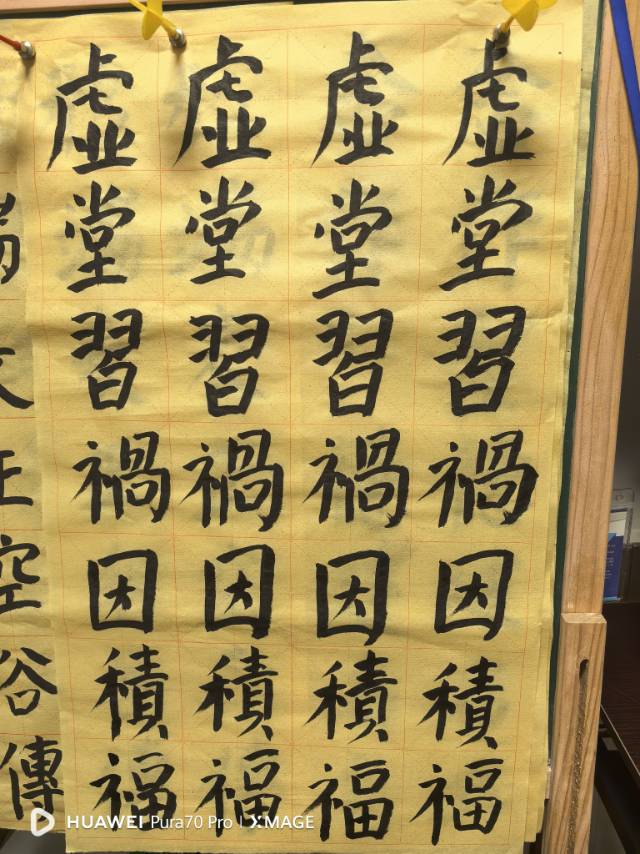 虚堂習禍因積福
虚堂習禍因積福
虚堂習禍因積福
虚堂習禍因積福
正空谷傳
HUAWEI Pura70 Pro | XMAGE